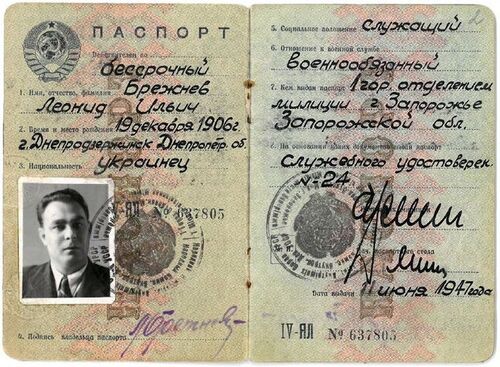 ПАСПОРТ
Действителен по
бессрочный
Брежнев
1. Имя, отчество, фамилия
Леонид Ильич
2. Время и место рождения 19 декабря 1906г.
г. Днепродзержинск Днепропер. об.
3. Национальность
украинец
IV-ЯЛ № 637805
4. Подпись владельца паспорта
2
5. Социальное положение служащий
6. Отношение к военной службе
военнообязанный
7. Кем выдан паспорт 1 гор. отделением
милиции г. Запорожье
Запорожской обл.
8. На основании каких документов выдан паспорт
служебного удостоверек.
№ 24
стола
Дата выдачи 11 июня 1947 года
IV-ЯЛ № 637805